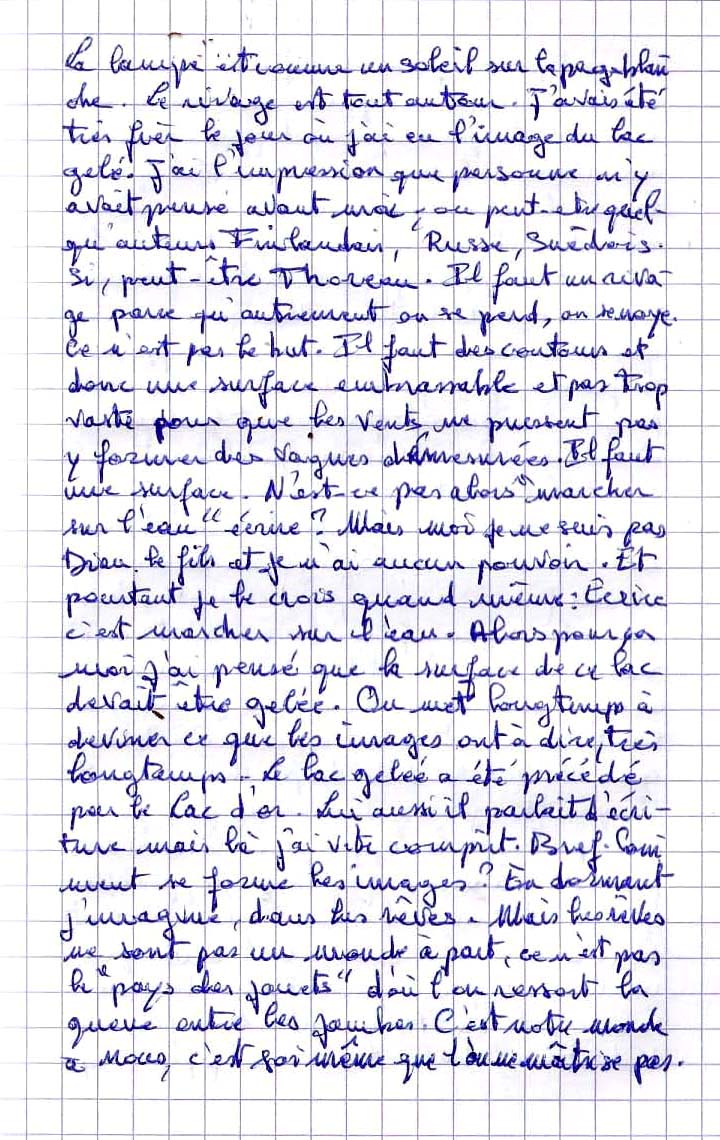 La lampe est comme un soleil sur la page blan
che. Le rivage est tout autour. J'avais été
très fier le jour où j'ai eu l'image du lac
gelé. J'ai l'impression que personne n'y
avait pensé avant moi, ou peut-etre quel-
qu'auteurs Finlandais, Russe, Suédois.
Si, peut-être Thoreau. Il faut un riva-
ge parce qu'autrement on se perd, on se noye.
Ce n'est pas le but. Il faut des contours et
donc une surface embrassable et pas trop
vaste pour que les vents ne puissent pas
y former des vagues démesurées. Il faut
une surface. N'est-ce pas alors "marcher
sur l'eau" écrire? Mais moi je ne suis pas
Dieu le fils et je n'ai aucun pouvoir. Et
pourtant je le crois quand même: Ecrire
c'est marcher sur l'eau. Alors pour ça
moi j'ai pensé que la surface de ce lac
devait être gelée. On met longtemps à
deviner ce que les images ont à dire, très
longtemps. Le lac geleé a été précédé
par le Lac d'or. Lui aussi il parlait d'écri-
ture mais là j'ai vite comprit. Bref. Com
ment se forme les images? En dormant
j'imagine, dans les rêves. Mais les rêves
ne sont pas un monde à part, ce n'est pas
le "pays des jouets" d'où l'on ressort la
queue entre les jambes. C'est notre monde
à nous, c'est soi même que l'on ne maîtrise pas.